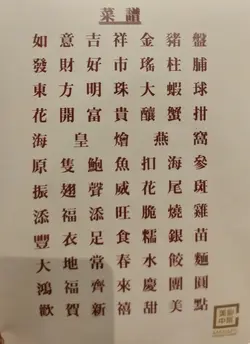 菜譜
如意吉祥金豬盤
發財好市瑤柱脯
東方明珠大蝦球
花開富貴釀蟹拑
海皇燴燕窩
原隻鮑魚扣海參
振翅聲威花尾斑
添福添旺脆燒雞
豐衣足食糯銀苗
大地常春水餃麵
鴻福齊來慶團圓
歡賀新禧甜美點